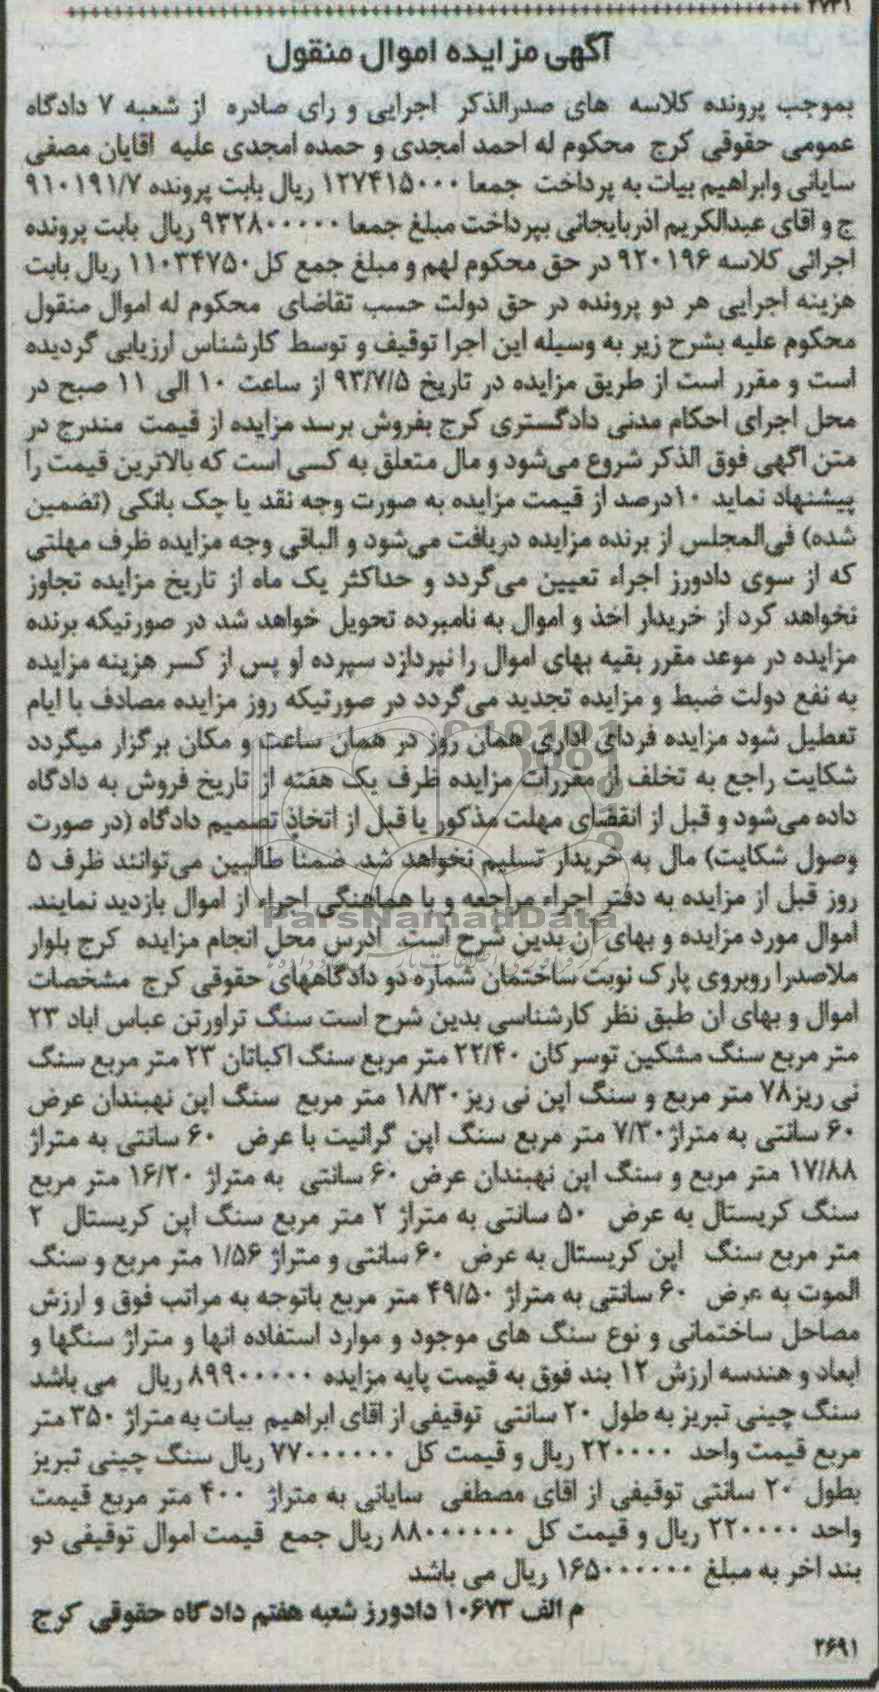 ۲۷۳۱
آگهی مزایده اموال منقول
بموجب پرونده کلاسه های صدرالذکر اجرایی و رای صادره از شعبه ۷ دادگاه
عمومی حقوقی کرج محکوم له احمد امجدی و حمده امجدی علیه اقایان مصفی
سایانی وابراهیم بیات به پرداخت جمعا ۱۲۷۴۱۵۰۰۰ ریال بابت پرونده ۹۱۰۱۹۱/۷
ج و اقای عبدالکریم اذربایجانی بپرداخت مبلغ جمعا ۹۳۲۸۰۰۰۰۰ ریال بابت پرونده
اجرائی کلاسه ۹۲۰۱۹۶ در حق محکوم لهم و مبلغ جمع کل ۱۱۰۳۴۷۵۰ ریال بابت
هزینه اجرایی هر دو پرونده در حق دولت حسب تقاضای محکوم له اموال منقول
محکوم علیه بشرح زیر به وسیله این اجرا توقیف و توسط کارشناس ارزیابی گردیده
است و مقرر است از طریق مزایده در تاریخ ۹۳/۷/۵ از ساعت ۱۰ الی ۱۱ صبح در
محل اجرای احکام مدنی دادگستری کرج بفروش برسد مزایده از قیمت مندرج در
متن اگهی فوق الذکر شروع می‌شود و مال متعلق به کسی است که بالاترین قیمت را
پیشنهاد نماید ۱۰درصد از قیمت مزایده به صورت وجه نقد یا چک بانکی (تضمین
شده) فی‌المجلس از برنده مزایده دریافت می‌شود و الباقی وجه مزایده ظرف مهلتی
که از سوی دادورز اجراء تعیین می‌گردد و حداکثر یک ماه از تاریخ مزایده تجاوز
نخواهد کرد از خریدار اخذ و اموال به نامبرده تحویل خواهد شد در صورتیکه برنده
مزایده در موعد مقرر بقیه بهای اموال را نپردازد سپرده او پس از کسر هزینه مزایده
به نفع دولت ضبط و مزایده تجدید می‌گردد در صورتیکه روز مزایده مصادف با ایام
تعطیل شود مزایده فردای اداری همان روز در همان ساعت و مکان برگزار میگردد
شکایت راجع به تخلف از مقررات مزایده ظرف یک هفته از تاریخ فروش به دادگاه
داده می‌شود و قبل از انقضای مهلت مذکور یا قبل از اتخاذ تصمیم دادگاه (در صورت
وصول شکایت) مال به خریدار تسلیم نخواهد شد. ضمنا طالبین می‌توانند ظرف ۵
روز قبل از مزایده به دفتر اجراء مراجعه و با هماهنگی اجراء از اموال بازدید نمایند.
ParsNamadData
اموال مورد مزایده و بهای آن بدین شرح است. ادرس محل انجام مزایده کرج بلوار
ملاصدرا روبروی پارک نوبت ساختمان شماره دو دادگاههای حقوقی کرج مشخصات
اموال و بهای ان طبق نظر کارشناسی بدین شرح است سنگ تراورتن عباس اباد ۲۳
متر مربع سنگ مشکین توسرکان ۲۲/۴۰ متر مربع سنگ اکباتان ۲۳ متر مربع سنگ
نی ریز۷۸ متر مربع و سنگ اپن نی ریز۱۸/۳۰ متر مربع سنگ اپن نهبندان عرض
۶۰ سانتی به متراژ۷/۳۰ متر مربع سنگ اپن گرانیت با عرض ۶۰ سانتی به متراژ
۱۷/۸۸ متر مربع و سنگ اپن نهبندان عرض ۶۰ سانتی به متراژ ۱۶/۲۰ متر مربع
سنگ کریستال به عرض ۵۰ سانتی به متراژ ۲ متر مربع سنگ اپن کریستال ۲
متر مربع سنگ اپن کریستال به عرض ۶۰ سانتی و متراژ ۱/۵۶ متر مربع و سنگ
الموت به عرض ۶۰ سانتی به متراژ ۴۹/۵۰ متر مربع باتوجه به مراتب فوق و ارزش
مصاحل ساختمانی و نوع سنگ های موجود و موارد استفاده انها و متراژ سنگها و
ابعاد و هندسه ارزش ۱۲ بند فوق به قیمت پایه مزایده ۸۹۹۰۰۰۰۰ ریال می باشد
سنگ چینی تبریز به طول ۲۰ سانتی توقیفی از اقای ابراهیم بیات به متراژ ۳۵۰ متر
مربع قیمت واحد ۲۲۰۰۰۰ ریال و قیمت کل ۷۷۰۰۰۰۰۰ ریال سنگ چینی تبریز
بطول ۲۰ سانتی توقیفی از اقای مصطفی سایانی به متراژ ۴۰۰ متر مربع قیمت
واحد ۲۲۰۰۰۰ ریال و قیمت کل ۸۸۰۰۰۰۰۰ ریال جمع قیمت اموال توقیفی دو
بند اخر به مبلغ ۱۶۵۰۰۰۰۰۰ ریال می باشد
م الف ۱۰۶۷۳ دادورز شعبه هفتم دادگاه حقوقی کرج
۲۶۹۱